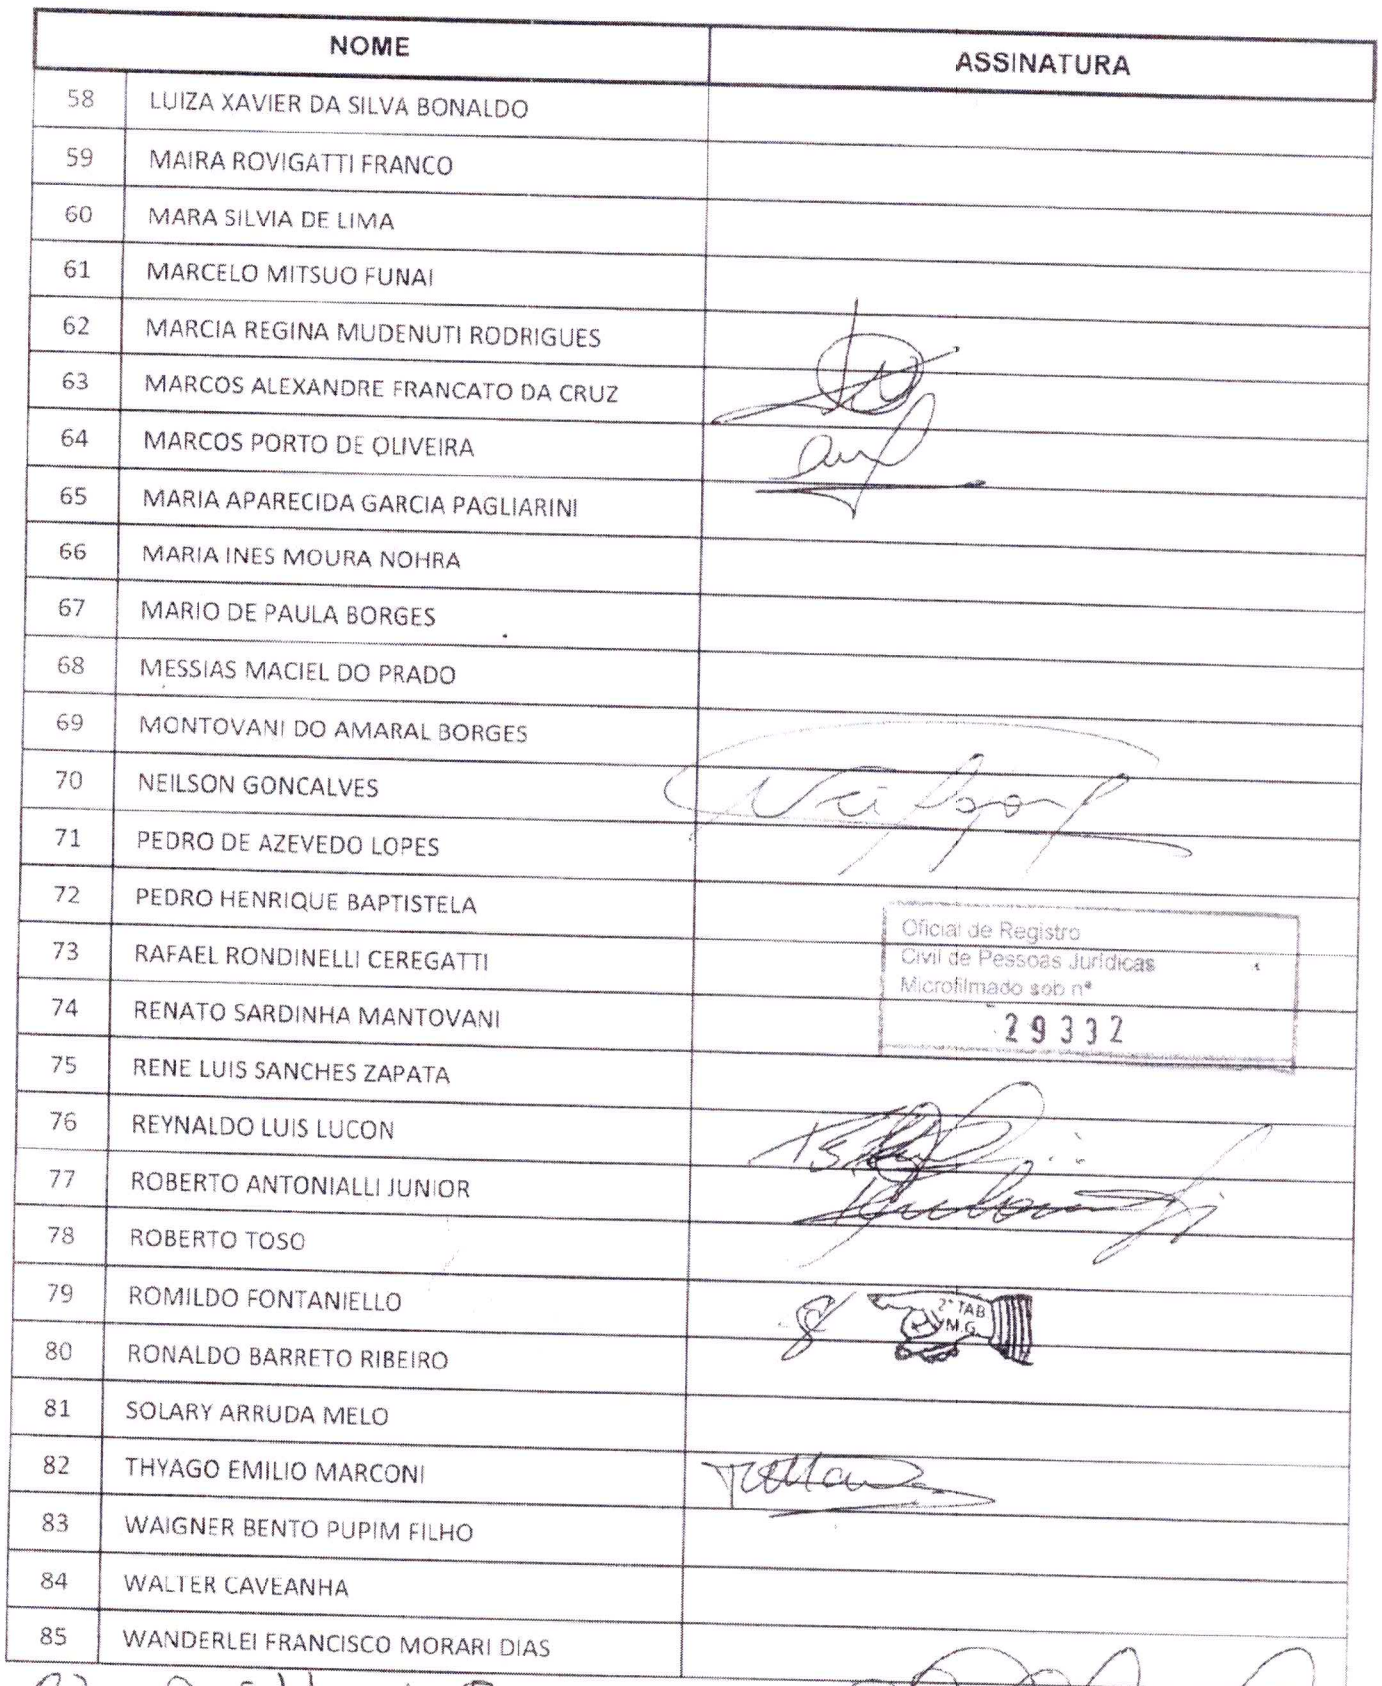 NOME ASSINATURA
58 LUIZA XAVIER DA SILVA BONALDO
59 MAIRA ROVIGATTI FRANCO
60 MARA SILVIA DE LIMA
61 MARCELO MITSUO FUNAI
62 MARCIA REGINA MUDENUTI RODRIGUES
63 MARCOS ALEXANDRE FRANCATO DA CRUZ
64 MARCOS PORTO DE OLIVEIRA
65 MARIA APARECIDA GARCIA PAGLIARINI
66 MARIA INES MOURA NOHRA
67 MARIO DE PAULA BORGES
68 MESSIAS MACIEL DO PRADO
69 MONTOVANI DO AMARAL BORGES
70 NEILSON GONCALVES
71 PEDRO DE AZEVEDO LOPES
72 PEDRO HENRIQUE BAPTISTELA
Oficial de Registro
73 RAFAEL RONDINELLI CEREGATTI
Civil de Pessoas Jurídicas
Microfilmado sob nº
74 RENATO SARDINHA MANTOVANI
29332
75 RENE LUIS SANCHES ZAPATA
76 REYNALDO LUIS LUCON
77 ROBERTO ANTONIALLI JUNIOR
78 ROBERTO TOSO
79 ROMILDO FONTANIELLO
2º TAB
M.G.
80 RONALDO BARRETO RIBEIRO
81 SOLARY ARRUDA MELO
82 THYAGO EMILIO MARCONI
83 WAIGNER BENTO PUPIM FILHO
84 WALTER CAVEANHA
85 WANDERLEI FRANCISCO MORARI DIAS